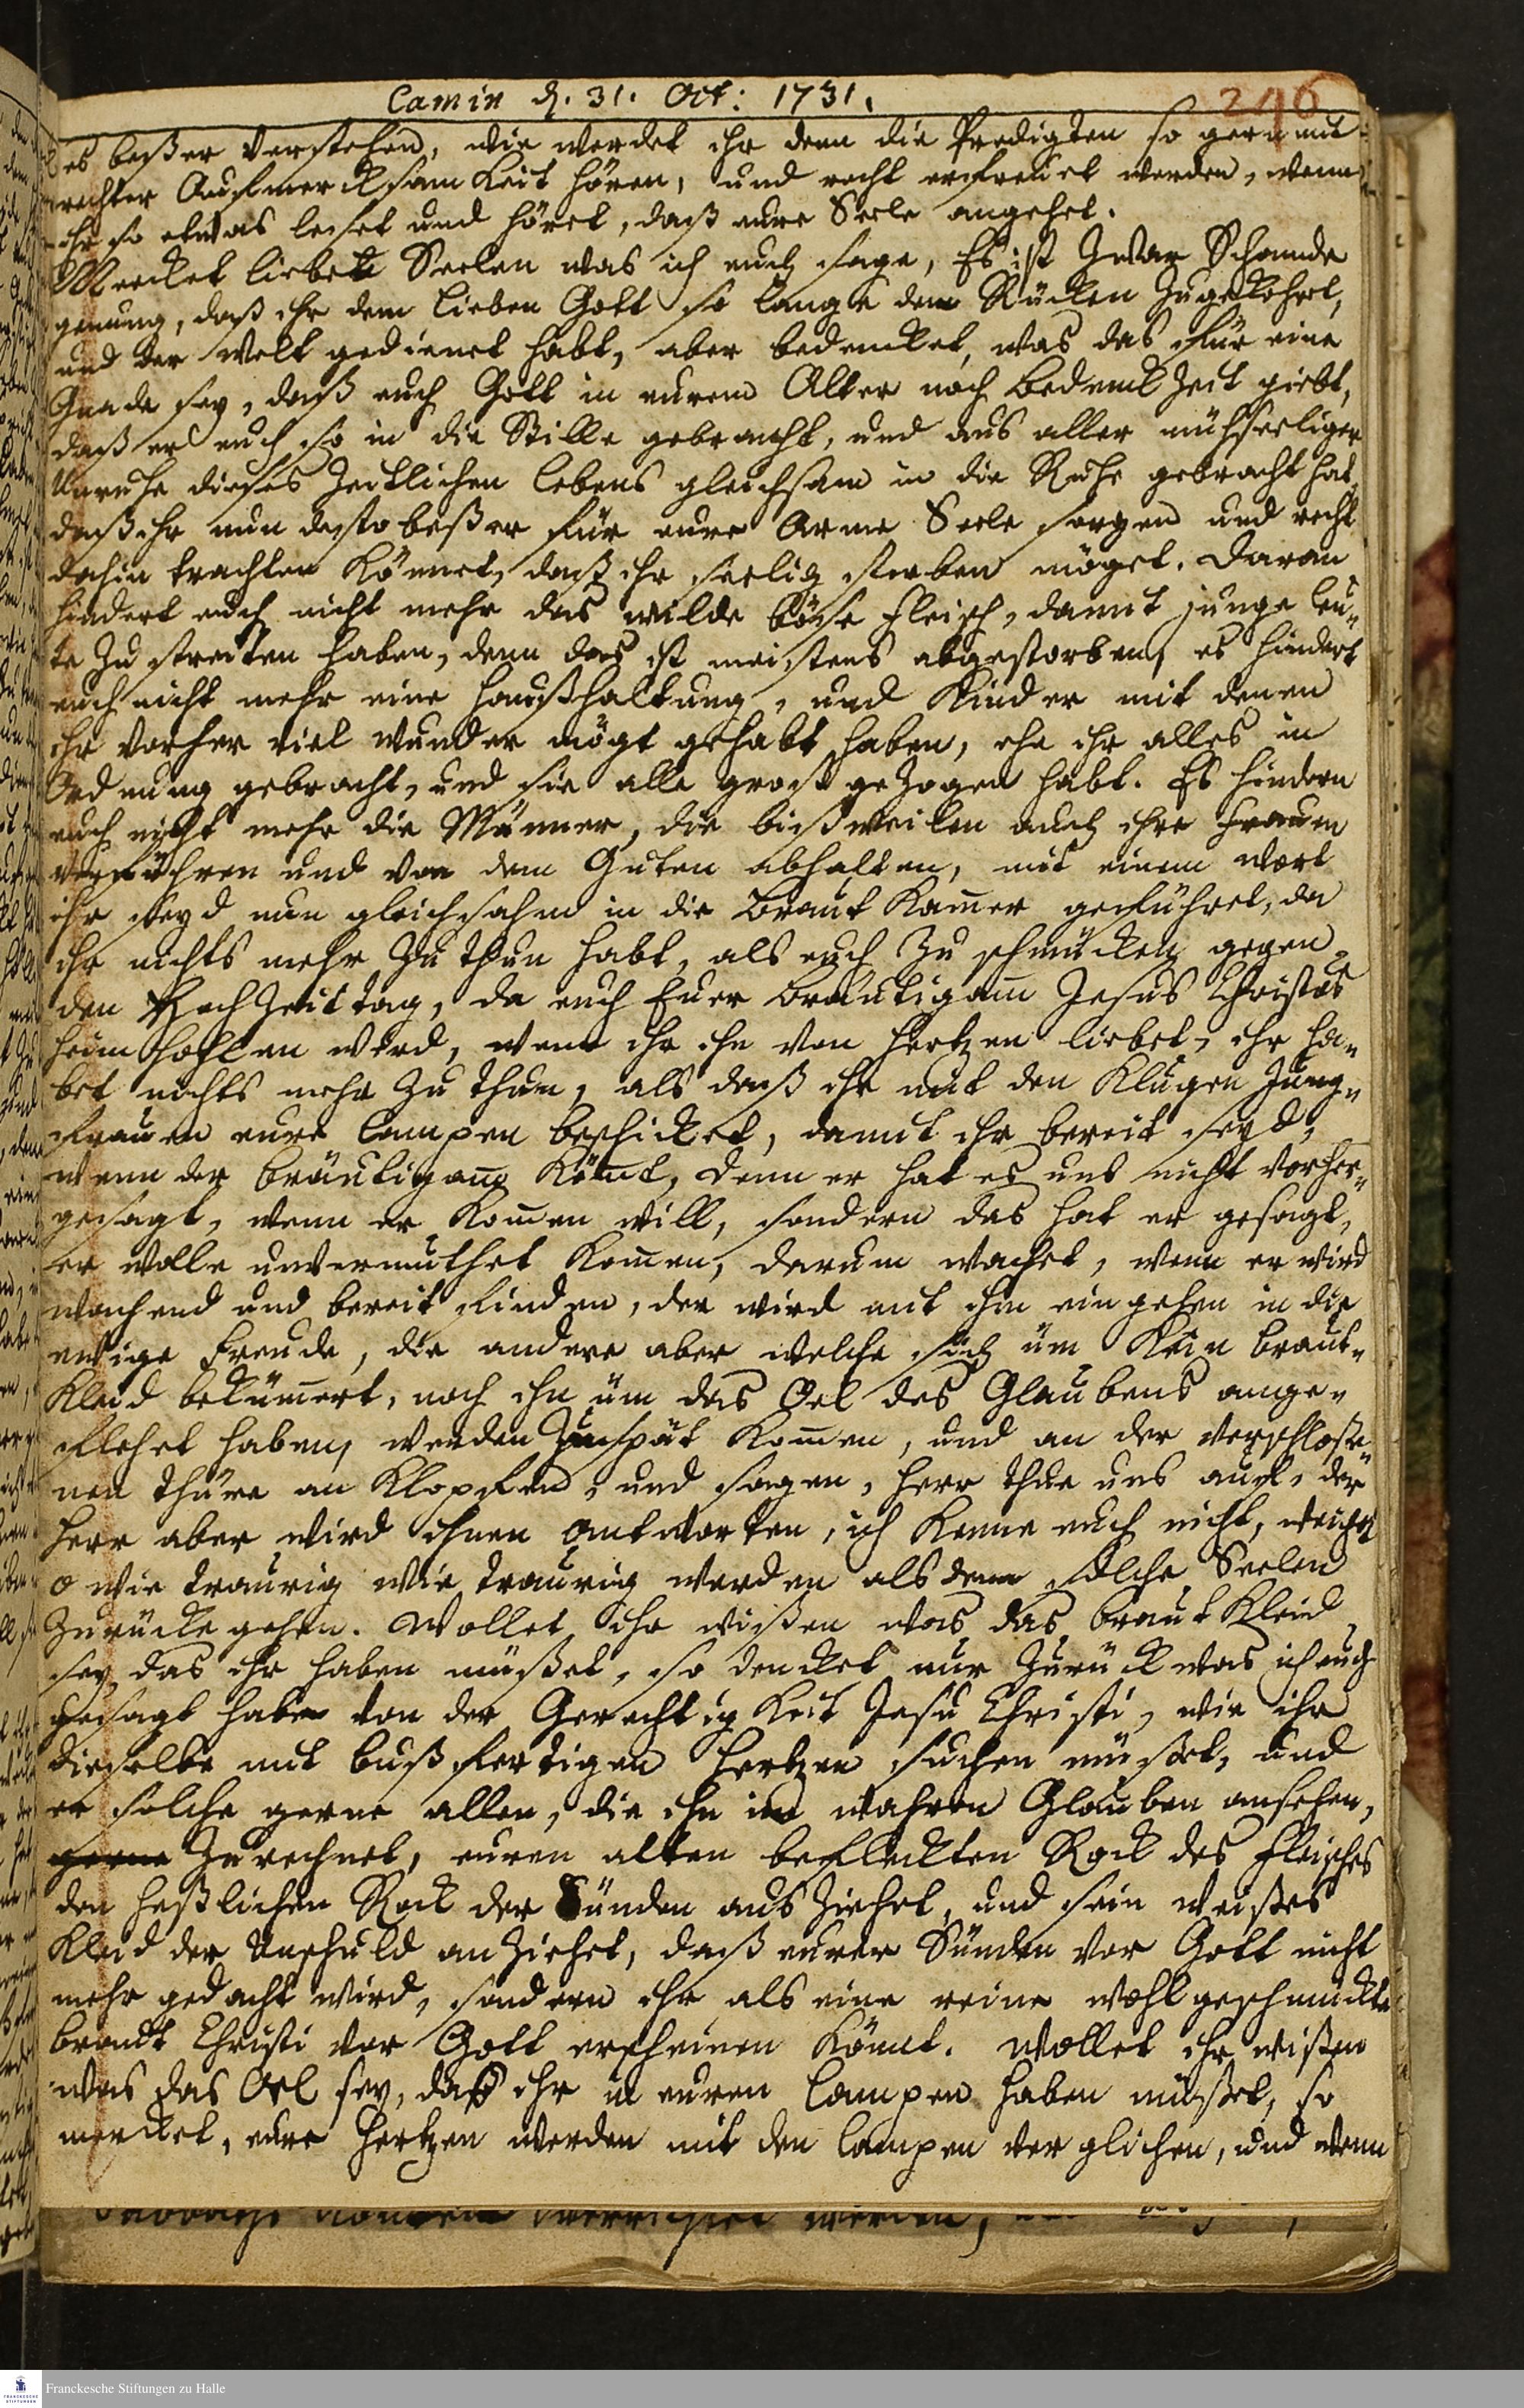 Camin d. 31. Oct: 1731.
246
es beßer verstehen, wie werdet ihr denn die Predigten so gern mit
rechter Aufmercksamkeit hören, und recht erfreuet werden, wenn
ihr so etwas leset und höret, daß eure Seele angehet.
Mercket liebete Seelen was ich euch sage, Es ist zwar Schande
genung, daß ihr dem lieben Gott so lange den Rücken zugekehret,
und der Welt gedienet habt, aber bedencket, was das für eine
Gnade sey, daß euch Gott in eurem Alter noch Bedenck Zeit giebt,
daß er euch so in die Stille gebracht, und aus aller mühseeligen
Unruhe dieses zeitlichen Lebens gleichsam in die Ruhe gebracht hat,
daß ihr nun desto beßer für eure Arme Seele sorgen und recht
dahin trachten könnet, daß ihr seelig sterben möget. Daran
hindert euch nicht mehr das wilde böse Fleisch, damit junge Leu¬
te zu streiten haben, denn das ist meistens abgestorben, es hindert
euch nicht mehr eine Haußhaltung, und Kinder mit denen
ihr vorher viel wunder mögt gehabt haben, ehe ihr alles in
Ordnung gebracht, und sie alle groß gezogen habt. Es hindern
euch nicht mehr die Männer, die bißweilen auch ihre Frauen
verführen und von dem Guten abhalten, mit einem Wort
ihr seyd nun gleichsahm in die Braut Kam̄er geführet, da
ihr nichts mehr zu thun habt, als euch zu schmücken gegen
den HochZeittag, da euch Euer Bräutigam̄ Jesus Christus
heimhohlen wird, wenn ihr ihn von Hertzen liebet, ihr ha¬
bet nichts mehr zu thun, als daß ihr mit den Klugen Jung¬
frauen eure Lampen beschicket, damit ihr bereit seyd,
wenn der Bräutigam̄ köm̄t, denn er hat es uns nicht vorher¬
gesagt, wenn er kom̄en will, sondern das hat er gesagt,
er wolle unvermuthet kom̄en, darum wachet, wenn er wird
wachend und bereit finden, der wird mit ihm eingehen in die
ewige Freude, die andere aber welche sich üm kein Braut¬
Kleid beküm̄ert, noch ihn üm das Oel des Glaubens ange¬
flehet haben, werden zu spät kom̄en, und an der verschloße¬
nen Thüre an klopfen, und sagen, Herr thue uns auf, der
Herr aber wird ihnen antworten, ich kenne euch nicht, weichet
o wie traurig wie traurig werden alsdenn solche Seelen
zurücke gehen. Wollet ihr wißen was das Braut Kleid
sey, das ihr haben müßet, so dencket nur zurück was ich euch
gesagt habe von der Gerechtigkeit Jesu Christi, wie ihr
dieselbe mit bußfertigen Hertzen suchen müßet, und
er solche gerne allen, die ihn im wahren Glauben ansehen,
gerne zurechnet, euren alten befleckten Rock des Fleisches
den heßlichen Rock der Sünden ausziehet, und sein weißes
Kleid der Unschuld anziehet, daß eurer Sünden vor Gott nicht
mehr gedacht wird, sondern ihr als eine reine wohlgeschmückte
Braut Christi vor Gott erscheinen könnt. Wollet ihr wißen
was das Oel sey, daß ihr in euren Lampen haben müßet, so
mercket, eure Hertzen werden mit den Lampen verglichen, und wenn
werden,
Franckesche Stiftungen zu Halle